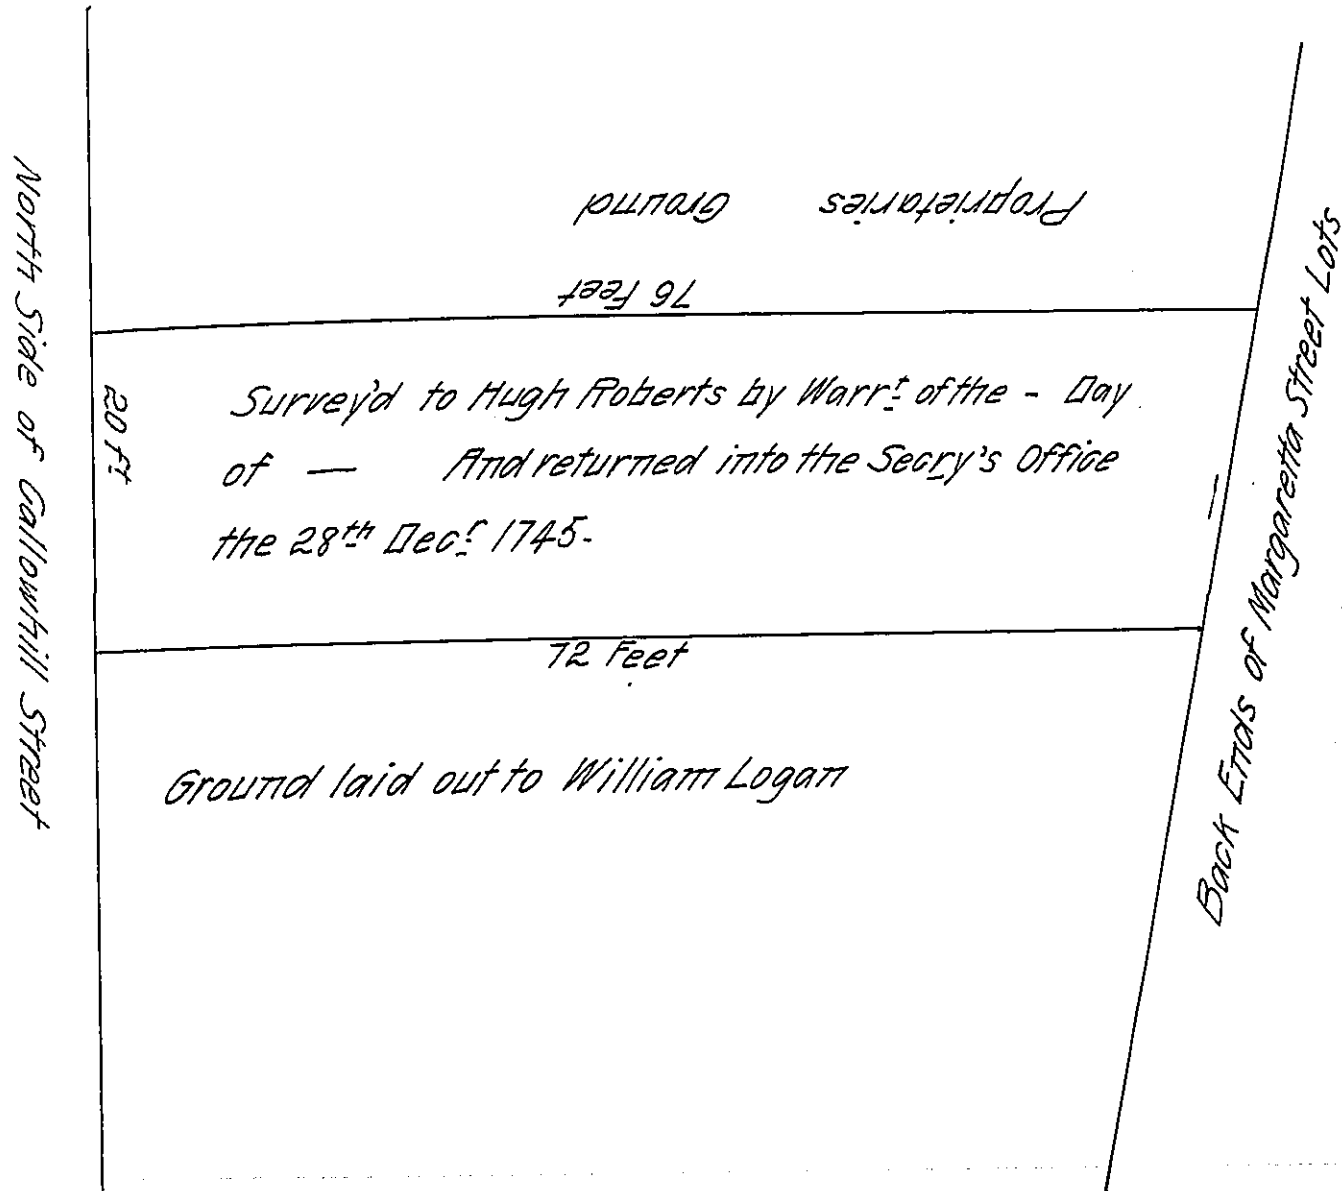 North Side of Callowhill Street
Proprietaries Ground
76 Feet
20 Ft
Survey'd to Hugh Roberts by Warrt of the - Day
of — And returned into the Secry's Office
the 28th Decr 1745-
72 Feet
Ground laid out to William Logan
Back Ends of Margaretta Street Lots